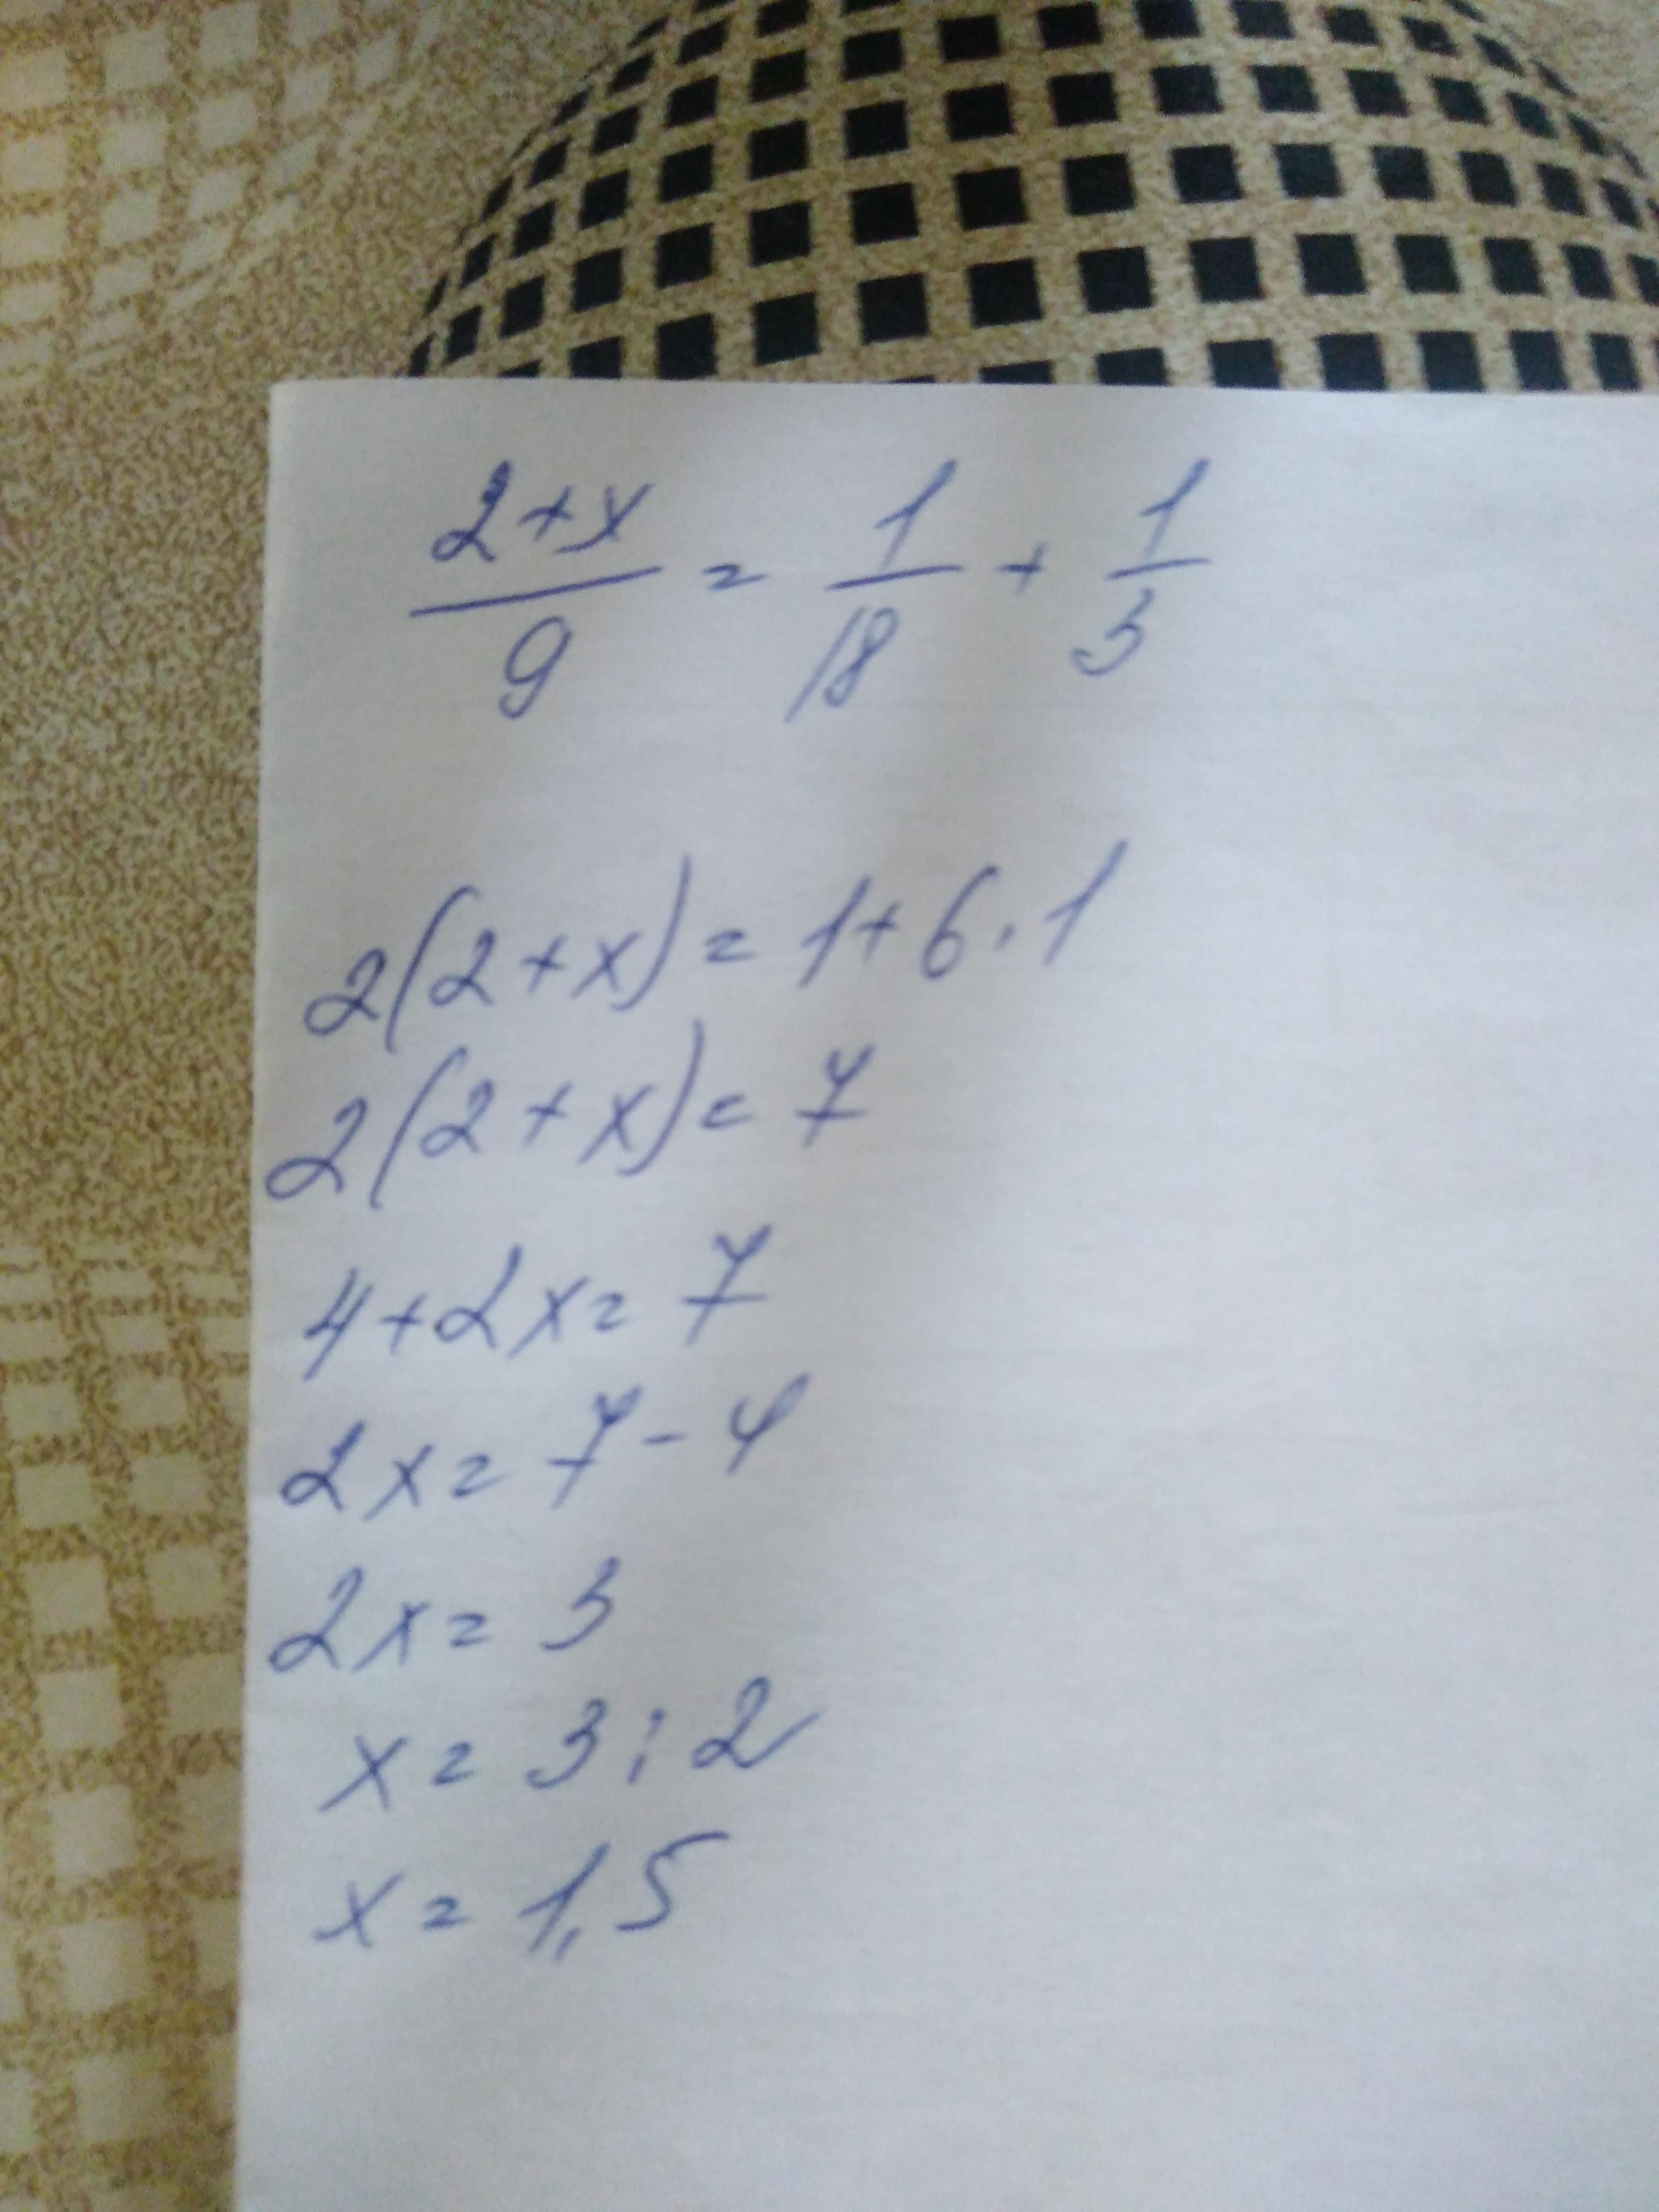 2+x/9 = 1/18 + 1/3
2(2+x)=1+6·1
2(2+x)=7
4+2x=7
2x=7-4
2x=3
x=3:2
x=1,5